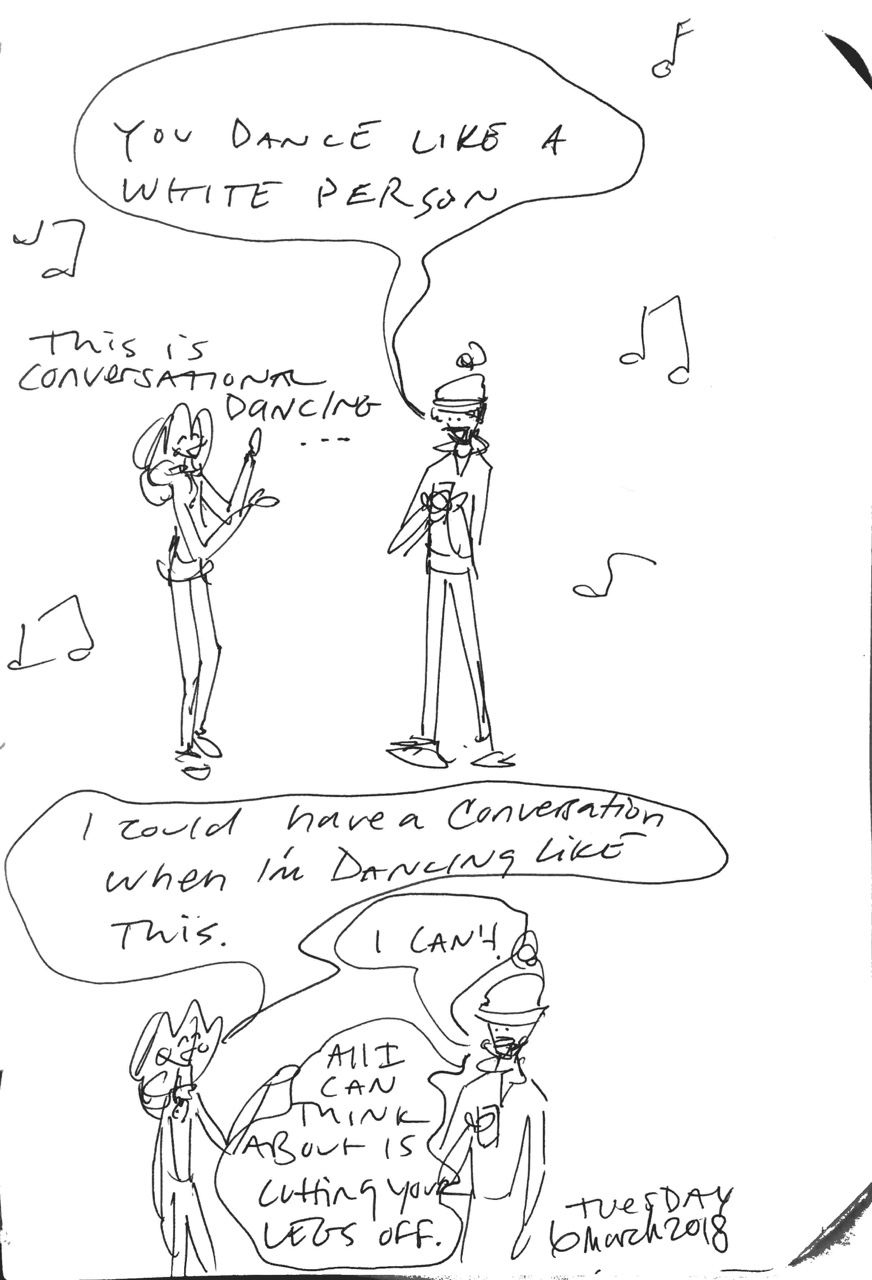 YOU DANCE LIKE A
WHITE PERSON
This is
CONVERSATIONAL
DANCING
...
I could have a Conversation
when I'm DANCING LIKE
This.
I CAN'T.
All I
CAN
THINK
ABOUT IS
Cutting your
LEGS OFF.
TUESDAY
6 March 2018